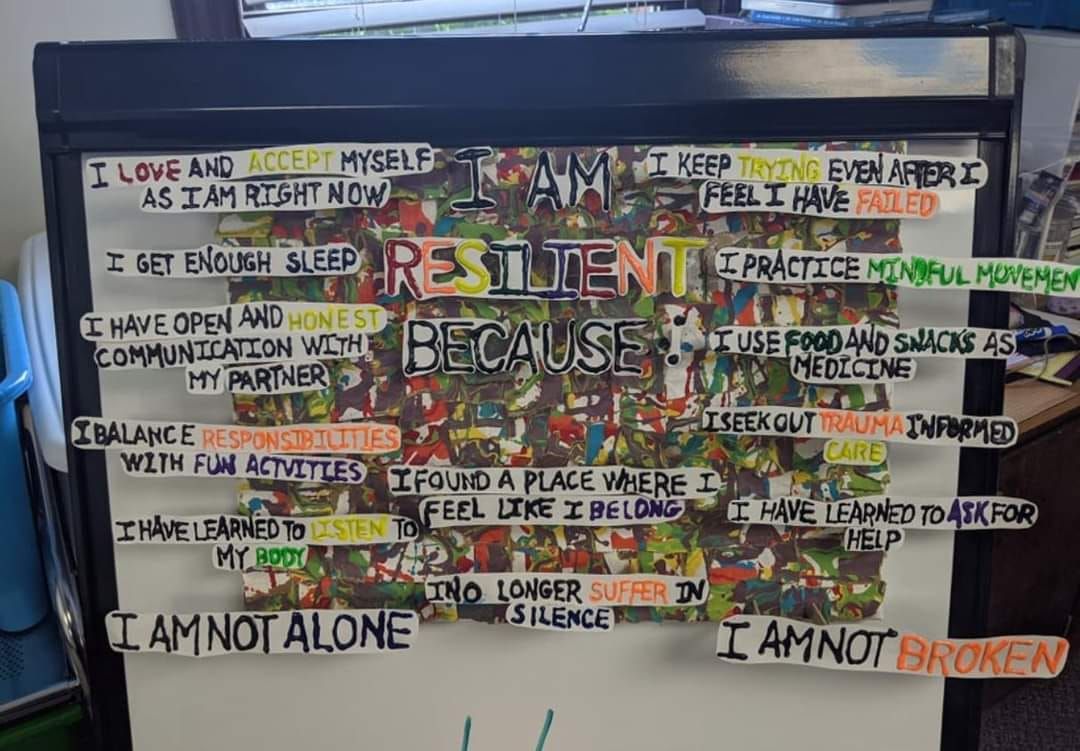 I AM
RESILIENT
BECAUSE:
I LOVE AND ACCEPT MYSELF
AS I AM RIGHT NOW
I GET ENOUGH SLEEP
I HAVE OPEN AND HONEST
COMMUNICATION WITH
MY PARTNER
I BALANCE RESPONSIBILITIES
WITH FUN ACTVITIES
I HAVE LEARNED TO LISTEN TO
MY BODY
I AM NOT ALONE
I FOUND A PLACE WHERE I
FEEL LIKE I BELONG
I NO LONGER SUFFER IN
SILENCE
I KEEP TRYING EVEN AFTER I
FEEL I HAVE FAILED
I PRACTICE MINDFUL MOVEMEN
I USE FOOD AND SNACKS AS
MEDICINE
I SEEK OUT TRAUMA INFORMED
CARE
I HAVE LEARNED TO ASK FOR
HELP
I AM NOT BROKEN